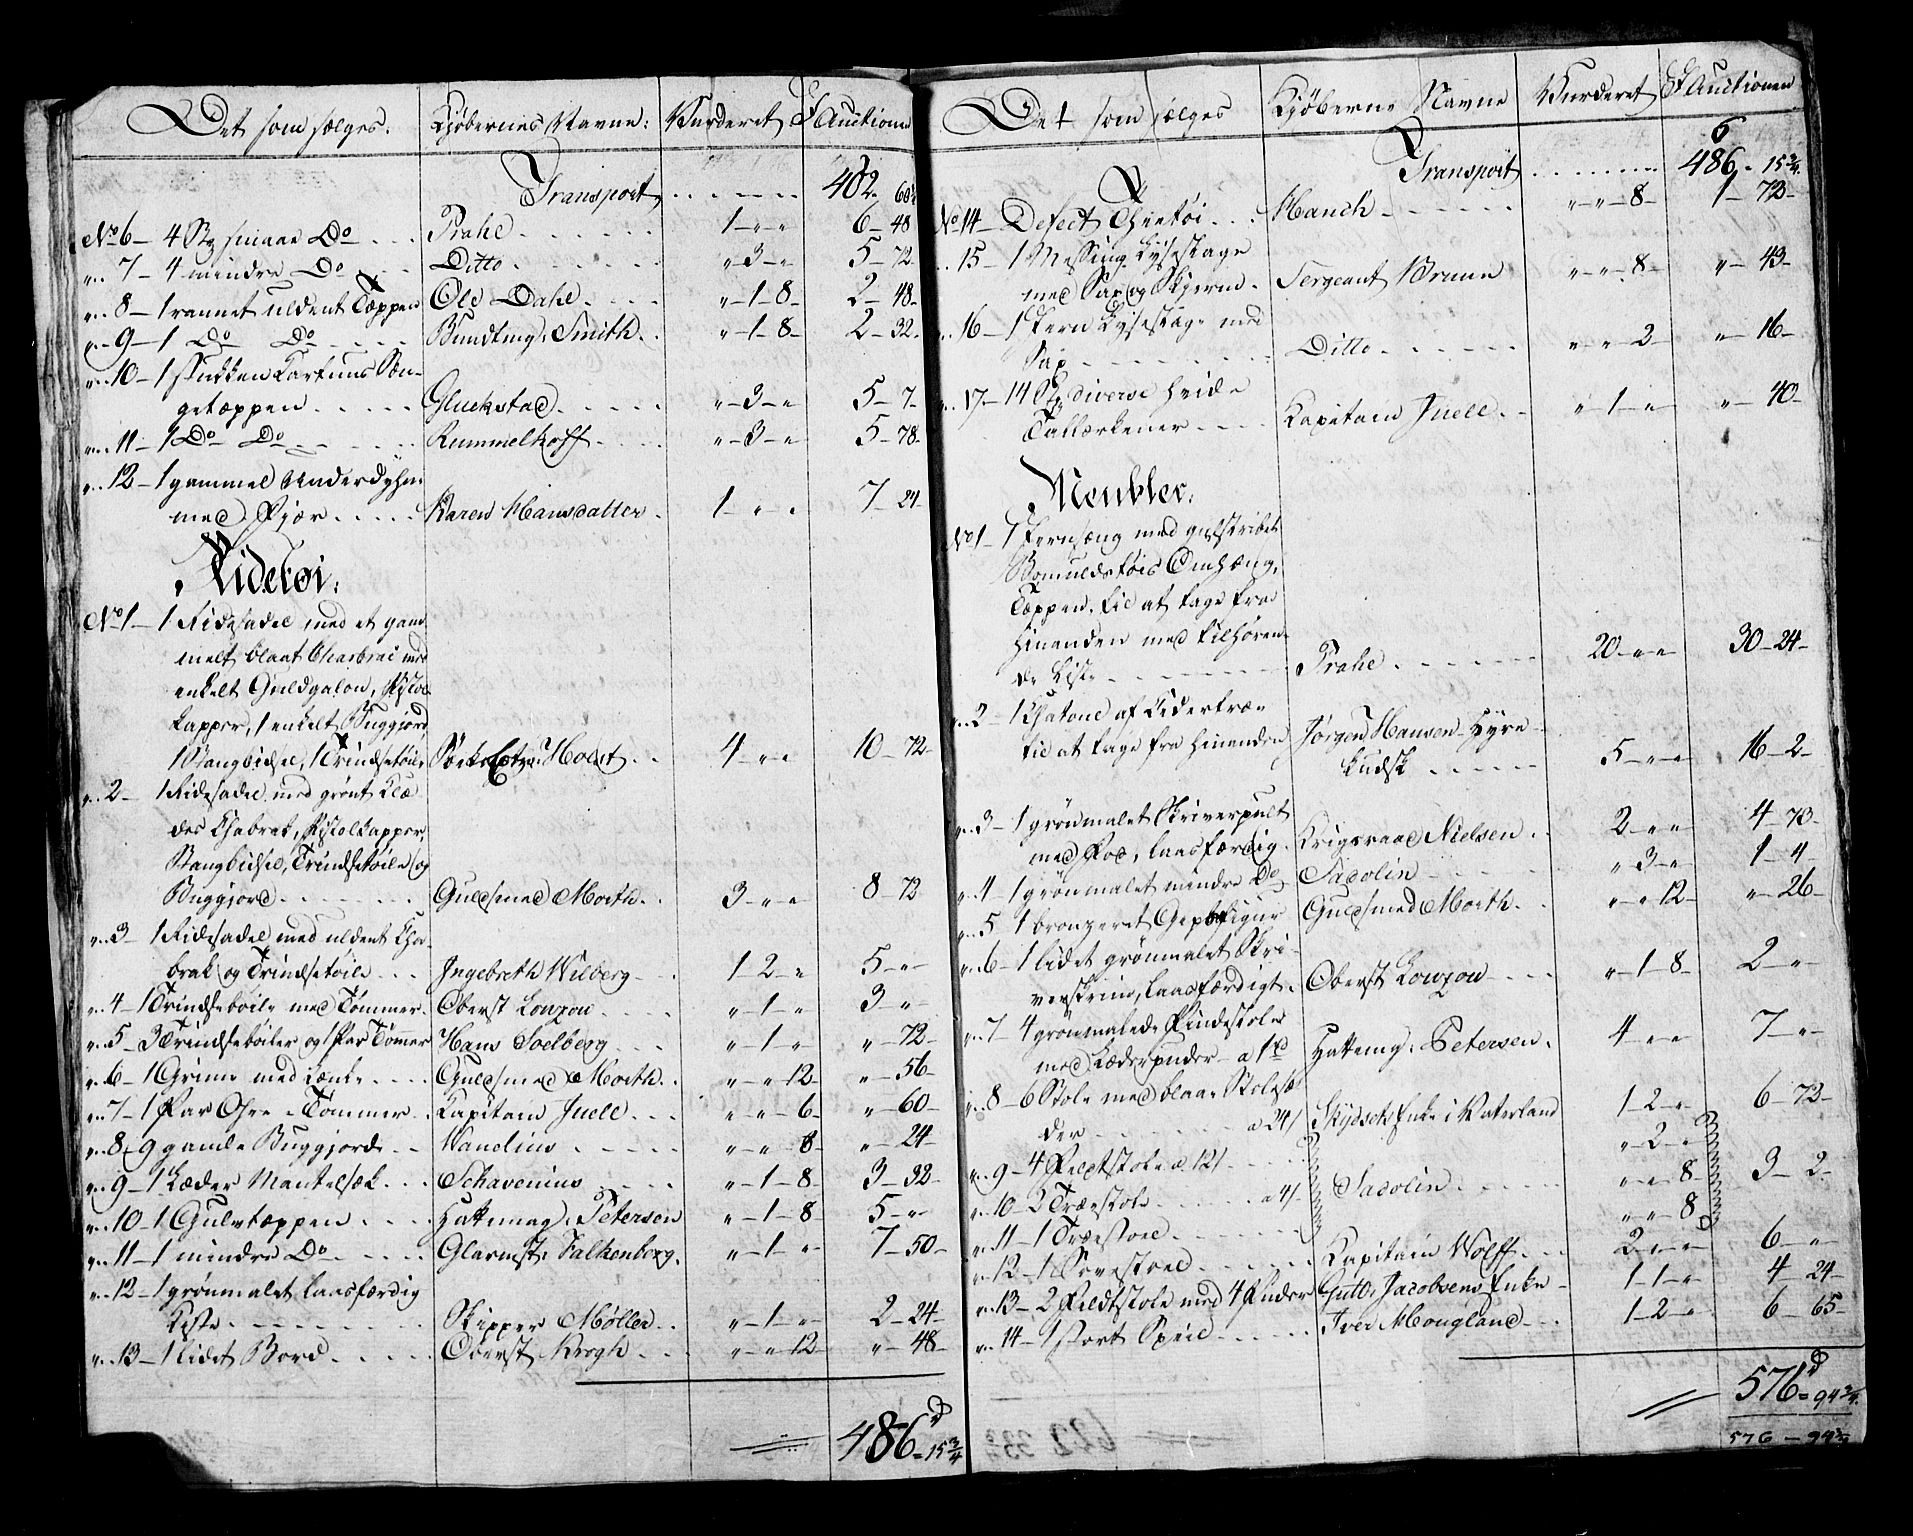 Det som sælges. Kjøbernes Navne: Vurderet Auctionen
Transport . . . . . . 402-
No 6 - 4 Stk smaae Do . . . Prahl . . . . . . 1 - " - " 6 - 48
" 7 - 4 mindre Do . . . Ditto . . . . . . " - 3 - " 5 - 72
" 8 - 1 rannet uldent Tæppen Ole Dahl . . . . " - 1 - 8 - 2 - 48 -
" 9 - 1 Do Do . . . . . Bundtmg: Smith . . " - 1 - 8 - 2 - 32 -
" 10 - 1 stukken Kartuns Sæn-
getæppen . . . . . Gluckstad . . . . . " - 3 - " 5 - 7 -
" 11 - 1 Do Do . . . . . . Rummelhoff . . . . " - 3 - " 5 - 78 -
" 12 - 1 gammel Underdyhne
med Fjær . . . . . Karen Hansdatter . 1 - " - " 7 - 24
Ridetøi:
No 1 - 1 Ridesadel med et gam-
melt blaat Chabrak med
enkelt Guldgalon, Pistol-
kapper, 1 enkelt Buggjord
1 Stangbidsel, 1 Trindsetøile Holst . . 4 - " - " 10 - 72 -
" 2 - 1 Ridesadel med grønt Klæ-
des Chabrak, Pistolkapper,
Stangbidsel, Trindsetøile og
Buggjord . . . . . . Guldsmed Morth . . 3 - " - " 8 - 72
" 3 - 1 Ridesadel med uldent Cha-
brak og Trindsetøile . . . Ingebreth Wilberg . . 1 - 2 - " 5 - " -
" 4 - 1 Trindsetøile med Tømmer . Oberst Lowzow . . . . " - 1 - " 3 - " -
" 5 - 3 Trindsetøiler og 1 Par Tømmer Hans Soelberg . . . " - 1 - " " - 72 -
" 6 - 1 Grime med Lænke . . . . Guldsmed Morth . . " - " 12 - " - 56 -
" 7 - 1 Par Øhre - Tømmer . . Kapitain Juell . . . " - " - 6 - " - 60 -
" 8 - 9 gamle Buggjorde . . Wandius . . . . . " - " - 8 - " - 24 -
" 9 - 1 Læder Mantelsæk . . . Schavenius . . . . " - 1 - 8 - 3 - 32 -
" 10 - 1 Gulvtæppen . . . . Hattemag: Petersen " - 1 - 8 5 - " -
" 11 - 1 mindre Do . . . . . Glarmst: Falkenberg . " - 1 - " 7 - 50 -
" 12 - 1 grønmalet laasfærdig
Kiste . . . . . . . . Skipper Møller . . " - 1 - " 2 - 24 -
" 13 - 1 lidet Bord . . . . . Oberst Krogh . . . " - " 12 - " - 48 -
486 d - 15 3/4
Det som sælges Kjøbernes Navne Vurderet Auctionen
6
Transport . . . . . . . 486 - 15 3/4
No 14 - Defect Theetøi . . . Manch . . . . . . " - " - 8 - 1 - 72 -
" 15 - 1 Messing Lysestage
med Sax og Skjerm . Sergeant Bruun " - " - 8 - " - 43 -
" 16 - 1 Jern Lysestage med
Sax . . . . . . . . . Ditto . . . . . . " - " 2 - " - 16 -
" 17 - 14 Stk diverse hvide
Tallærkener . . . . Kapitain Juell . . " - 1 - " " - 40 -
Meubler:
No 1 - 1 Jernsæng med guulstribet
Bomuldstøis Omhæng,
Tæppen, til at tage fra
hinanden med tilhøren-
de Kiste . . . . . . . . Prahl . . . . . . . 20 - " - " 30 - 24 -
" 2 - 1 Chatoul af Lidertræe
til at tage fra hinanden Jørgen Hansen Hyre-
kudsk . . . . . . 5 - " - " 16 - 2 -
" 3 - 1 grønmalet Skriverpult
med Fod, laasfærdig . Krigsraad Nielsen . . 2 - " - " 4 - 73 -
" 4 - 1 grønmalet mindre Do Sadolin . . . . . " - 3 - " 1 - 4 -
" 5 1 bronzeret Gipsfigur Guldsmed Morth . . " - " 12 - " - 26 -
" 6 - 1 lidet grønmalet Skri-
verskrin, laasfærdigt . Oberst Lowzow . . . . " - 1 - 8 - 2 - " -
" 7 - 4 grønmalede Pindestoler
med Læderpuder - a 1 rd Hattemg: Petersen . 4 - " - " 7 - " -
" 8 - 6 Stole med blaae Stolesæ-
der . . . . . . . a 24/ Enke i Vaterland 1 - 2 - " 6 - 72 -
" 9 - 4 Feldtstole a 12/ . . . . " - 2 - "
" 10 - 2 Træestole . . . . . . a 4/ Sadolin . . . . . " - " - 8 - 3 - 2 -
" 11 - 1 Træestoel . . . . . . . " - " - 8
" 12 - 1 Sovestoel . . . . . . . Kapitain Wolff . . . 2 - " - " 6 - " -
" 13 - 2 Feldtstole med 4 Puder Gutb: Jacobsens Enke - 1 - 1 - " 4 - 24 -
" 14 - 1 stort Speil . . . . . Iver Mougland . . . 1 - 2 - " 6 - 65 -
576 d - 94 3/4
576 - 94 3/4